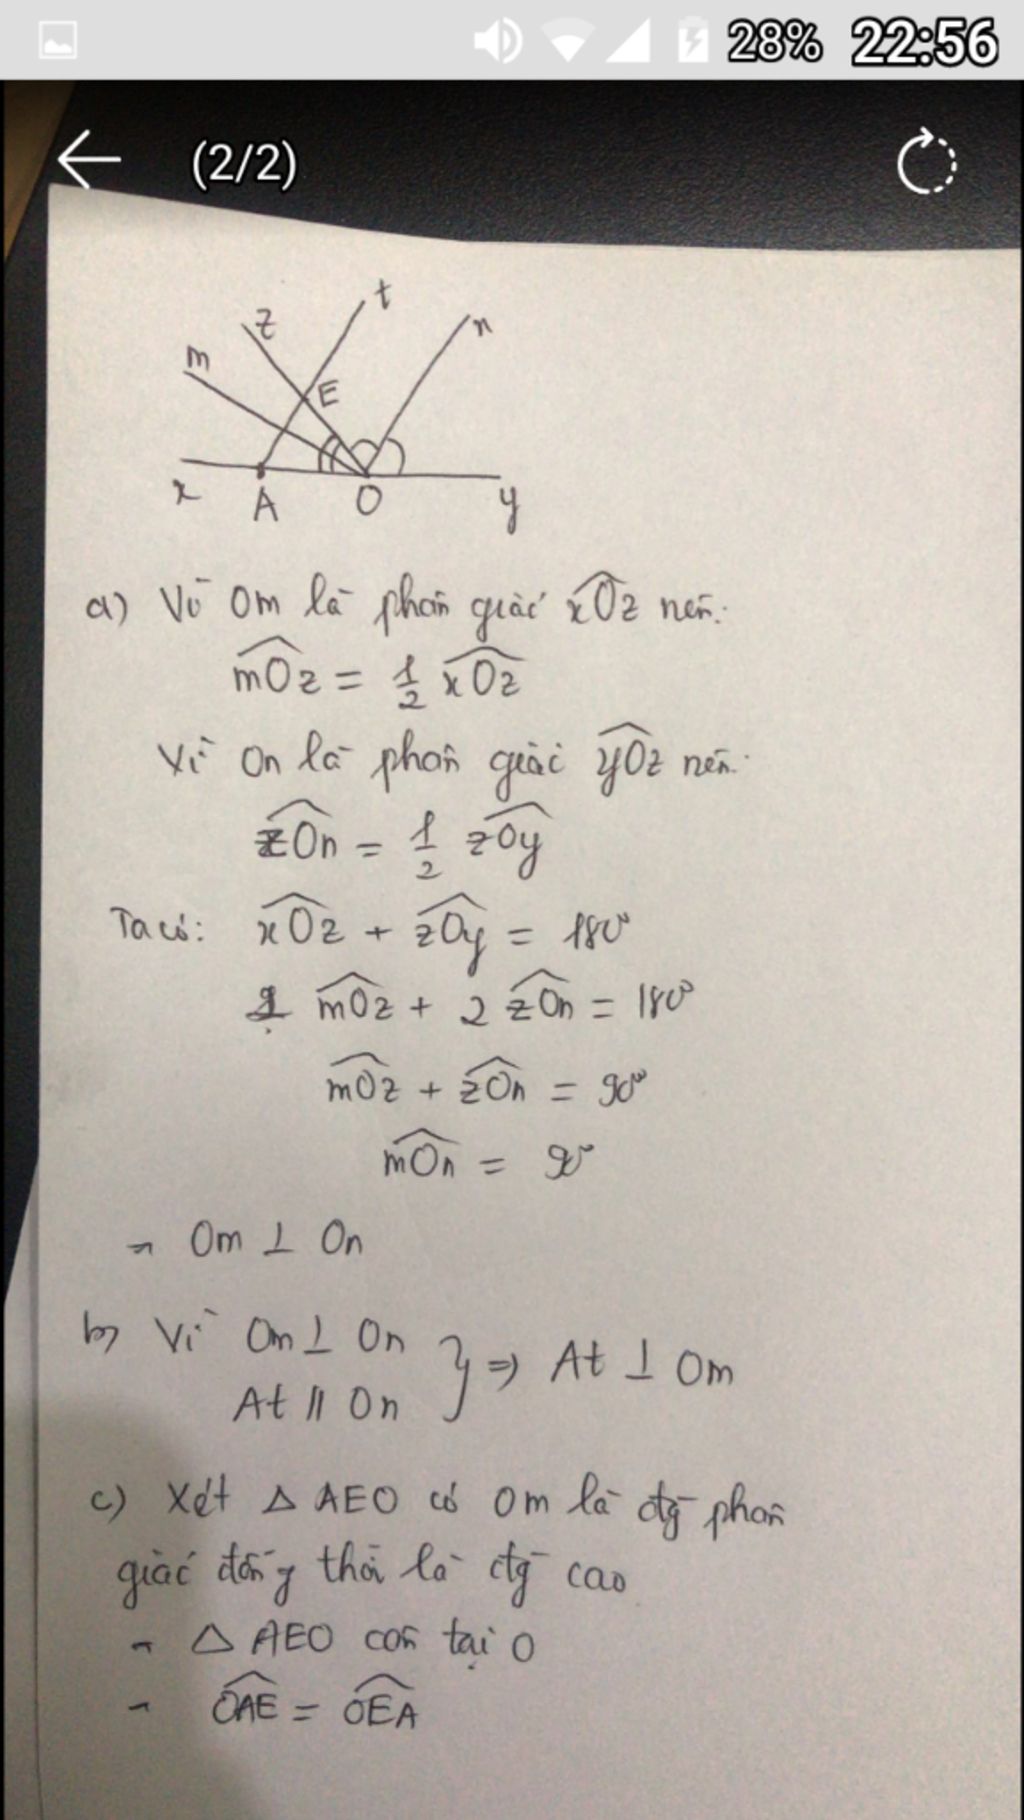 28% 22:56
(2/2)
t
z
n
m
E
x A O y
a) Vì Om là phân giác xOz nên:
mOz = 1/2 xOz
Vì On là phân giác yOz nên:
zOn = 1/2 zOy
Ta có: xOz + zOy = 180°
2 mOz + 2 zOn = 180°
mOz + zOn = 90°
mOn = 90°
⇒ Om ⊥ On
b) Vì Om ⊥ On
At // On } ⇒ At ⊥ Om
c) Xét △ AEO có Om là đg phân
giác đồng thời là đg cao
⇒ △ AEO cân tại O
⇒ OAE = OEA